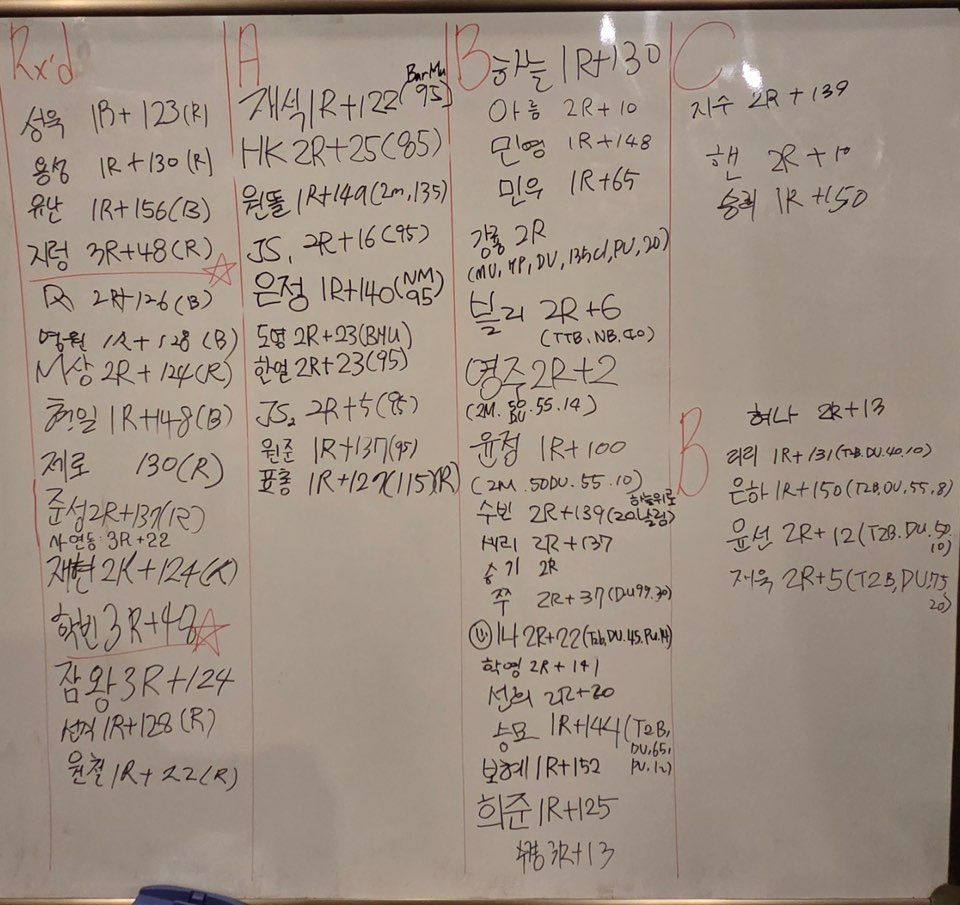 Rx'd
성욱 1R+123(R)
용성 1R+130(R)
유난 1R+156(B)
지렁 3R+48(R)
2R+126(B)
영원 1R+128(B)
M상 2R+124(R)
1R+148(B)
제로 130(R)
준성 2R+137(R)
사연동 3R+22
재현 2R+124(R)
학빈 3R+48
잠왕 3R+124
1R+128(R)
원철 1R+22(R)
A
재석 1R+122(BarMu 95)
HK 2R+25(85)
원돌 1R+149(2m,135)
JS₁ 2R+16(95)
은정 1R+140(NM 95)
도영 2R+23(BMU)
한열 2R+23(95)
JS₂ 2R+5(95)
원준 1R+137(95)
표홍 1R+127(115)(R)
B
하늘 1R+130
아름 2R+10
민영 1R+148
민우 1R+65
강룡 2R
(MU, HP, DU, 135cl, PU, 20)
블리 2R+6
(TTB. NB. 40)
영주 2R+2
(2M. 50 DU. 55. 14)
윤정 1R+100
(2M. 50DU. 55. 10)
수빈 2R+139(20날림) 하늘위로
세리 2R+137
승기 2R
쭈 2R+37(DU99.30)
이나 2R+22(T2b, DU.45, PU.14)
학영 2R+141
선희 2R+20
승묘 1R+144(T2B, DU, 65, PU.12)
보혜 1R+152
희준 1R+125
3R+13
C
지수 2R+139
핸 2R+10
승리 1R+150
B
허나 2R+13
리리 1R+131(T2B.DU.40.10)
은하 1R+150(T2B, DU, 55, 8)
윤선 2R+12(T2B. DU. 50. 10)
재욱 2R+5(T2B, DU, 75, 20)